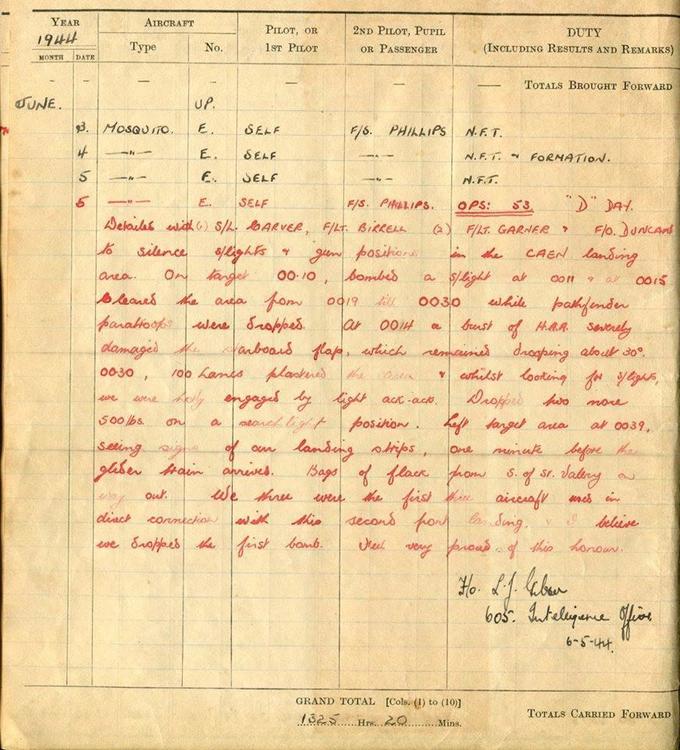 YEAR AIRCRAFT PILOT, OR 2ND PILOT, PUPIL DUTY
1944 Type No. 1ST PILOT OR PASSENGER (INCLUDING RESULTS AND REMARKS)
MONTH DATE
— — — — — TOTALS BROUGHT FORWARD
JUNE. UP.
3. MOSQUITO. E. SELF F/S. PHILLIPS N.F.T.
4 —"— E. SELF —"— N.F.T. & FORMATION.
5 —"— E. SELF —"— N.F.T.
5 —"— E. SELF F/S. PHILLIPS. OPS: 53 "D" DAY.
Detailed with (1) S/L. CARVER, F/LT. BIRRELL (2) F/LT. GARNER & F/O. DUNCAN
to silence s/lights & gun positions in the CAEN landing
area. On target 00.10, bombed a s/light at 0011 & at 0015
Cleared the area from 0019 till 0030 while pathfinder
paratroops were dropped. At 0014 a burst of H.A.A. severely
damaged the starboard flap, which remained dropping about 30°.
0030, 100 Lancs plastered the area & whilst looking for s/lights,
we were hotly engaged by light ack-ack. Dropped two more
500lbs. on a searchlight position. Left target area at 0039,
seeing signs of our landing strips, one minute before the
glider train arrives. Bags of flack from S. of St. Valery on
way out. We three were the first three aircraft used in
direct connection with this second front landing, & I believe
we dropped the first bomb. Feel very proud of this honour.
F/o. L.J.
605. Intelligence Officer
6-5-44.
GRAND TOTAL [Cols. (1) to (10)]
1325 Hrs. 20 Mins. TOTALS CARRIED FORWARD